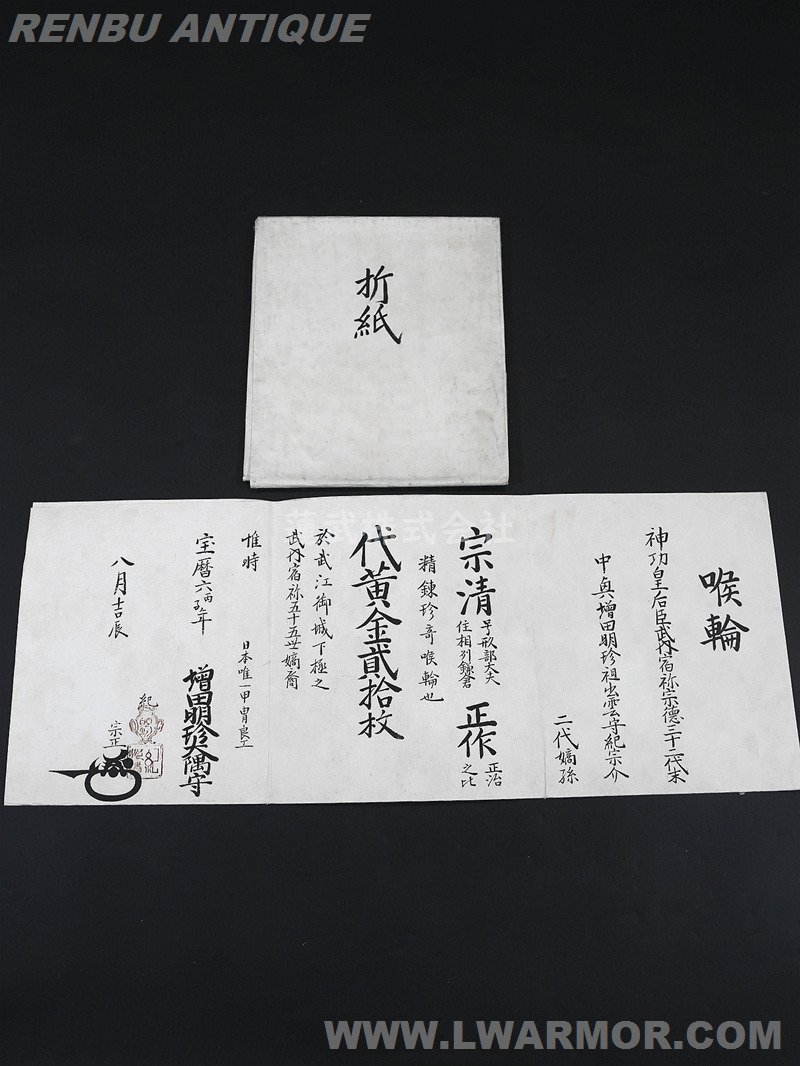 RENBU ANTIQUE
折紙
喉輪
神功皇后臣武内宿祢宗徳三十二代末
中興増田明珍祖出雲守紀宗介
二代嫡孫
宗清 号刑部大夫 住相列鎌倉 正作 正治之比
精錬珍奇喉輪也
代黄金貳拾枚
於武江御城下極之
武内宿祢五十五世嫡裔
惟時
日本唯一甲冑良工
宝暦六丙子年
増田明珍大隅守
紀
宗正
八月吉辰
WWW.LWARMOR.COM